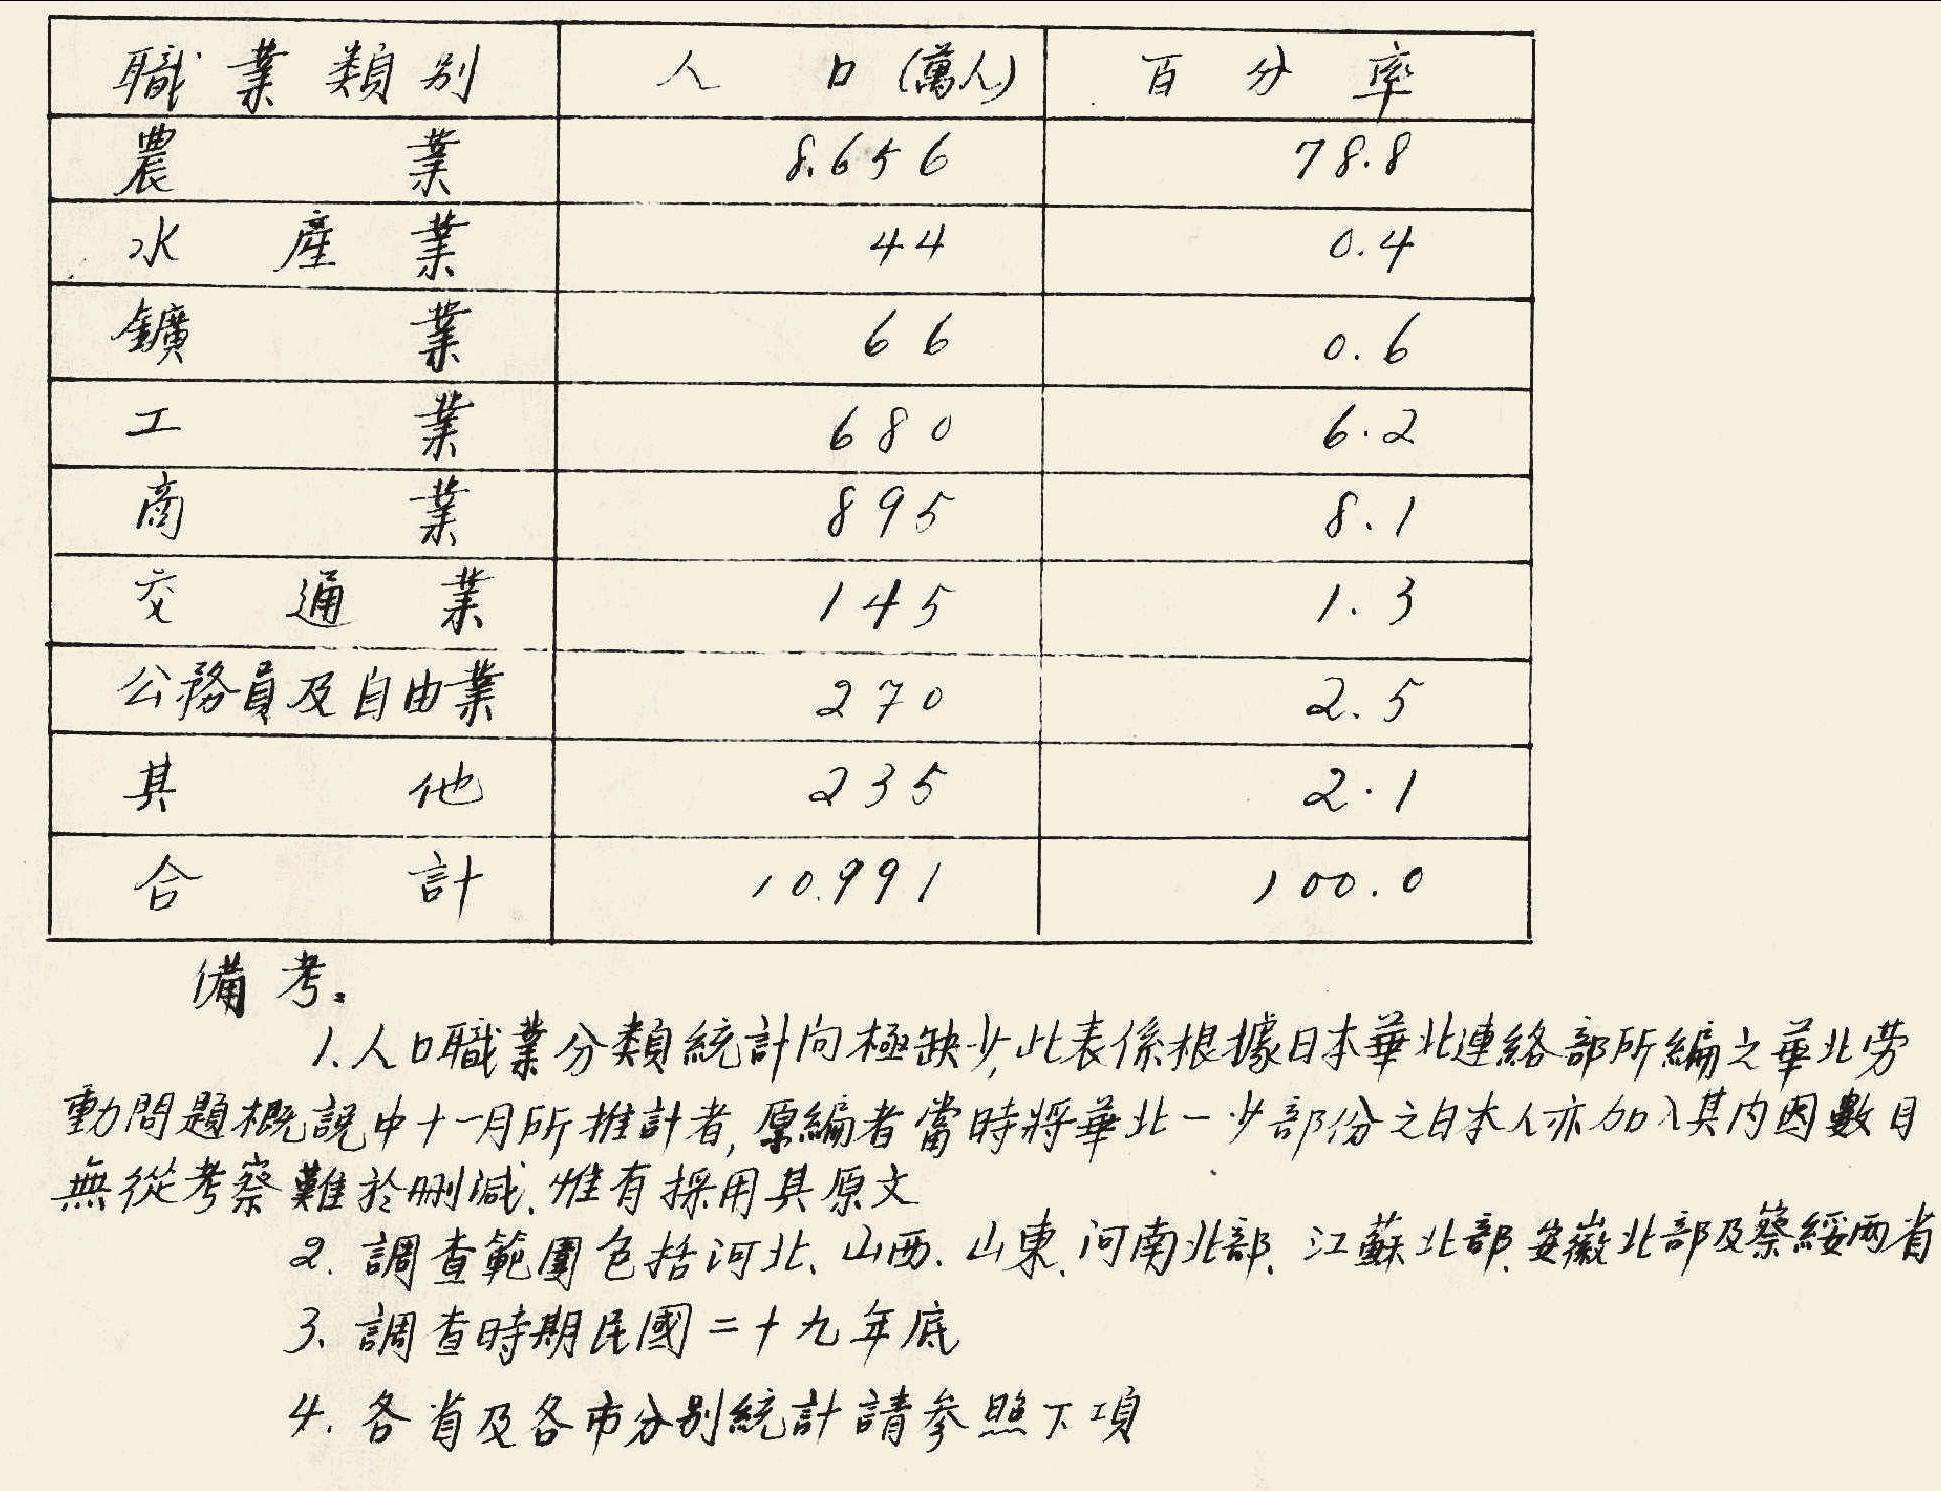 職業類別 人口(萬人) 百分率
農業 8.656 78.8
水產業 44 0.4
鑛業 66 0.6
工業 680 6.2
商業 895 8.1
交通業 145 1.3
公務員及自由業 270 2.5
其他 235 2.1
合計 10.991 100.0
備考。
1.人口職業分類統計向極缺少,此表係根據日本華北連絡部所編之華北勞
動問題概說中十一月所推計者,原編者當時將華北一少部份之日本人亦加入其內因數目
無從考察難於刪減、惟有採用其原文
2. 調查範圍包括河北、山西、山東、河南北部、江蘇北部、安徽北部及察綏兩省
3、調查時期民國二十九年底
4. 各省及各市分別統計請參照下項